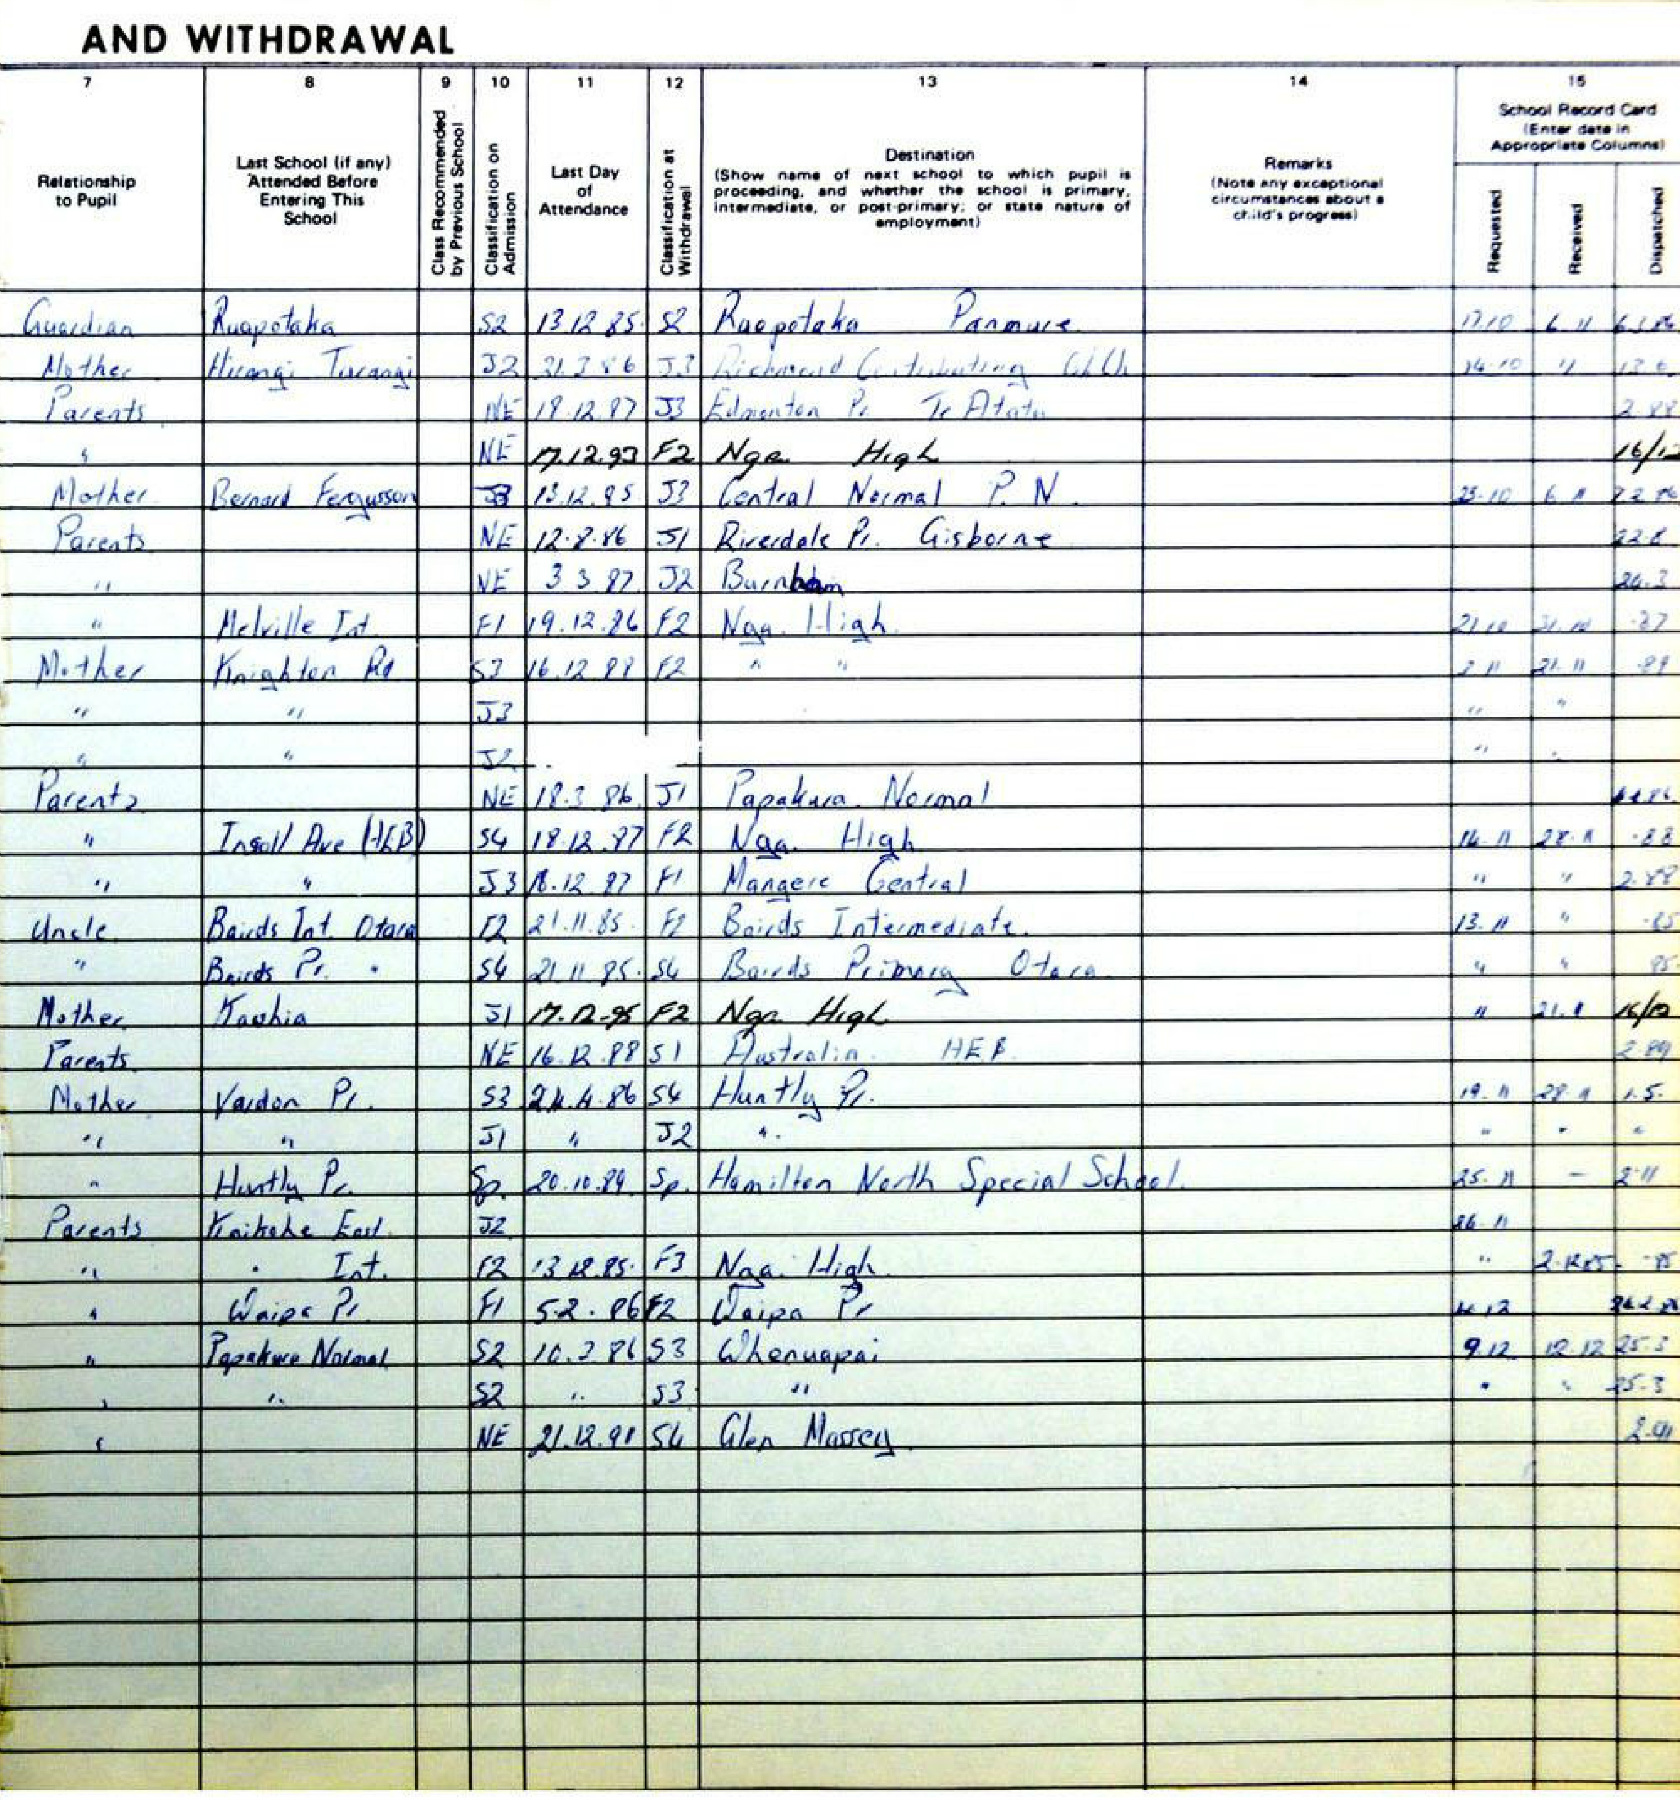 AND WITHDRAWAL
7 8 9 10 11 12 13 14 15
Relationship to Pupil
Last School (if any) Attended Before Entering This School
Class Recommended by Previous School
Classification on Admission
Last Day of Attendance
Classification at Withdrawal
Destination
(Show name of next school to which pupil is proceeding, and whether the school is primary, intermediate, or post-primary; or state nature of employment)
Remarks
(Note any exceptional circumstances about a child's progress)
School Record Card
(Enter date in Appropriate Columns)
Requested Received Dispatched
Guardian Ruapotaka S2 13.12.85 S2 Ruapotaka Panmure 17.10 6.11
Mother Hirangi Turangi J2 J3 Richmond Contributing ChCh 24.10 "
Parents NE 18.12.87 J3 Edmonton Pr. Te Atatu 2.88
" NE 17.12.93 F2 Nga. High 16/12
Mother Bernard Fergusson J3 13.12.85 J3 Central Normal P.N. 25.10 6.11
Parents NE 12.8.86 J1 Riverdale Pr. Gisborne 22.8
" NE 3.3.87 J2 Burnham 24.3
" Melville Int. F1 19.12.86 F2 Nga. High 21.10 31.10 -87
Mother Knighton Rd S3 16.12.88 F2 " " 21.11 -89
" " J3 " "
" " J2 " "
Parents NE 18.3.86 J1 Papakura Normal
" Insoll Ave (HEB) S4 18.12.87 F2 Nga. High 14.11 28.11 -88
" " J3 18.12.87 F1 Mangere Central " " 2.88
Uncle Bairds Int. Otara F2 21.11.85 F2 Bairds Intermediate. 13.11 " -85
" Bairds Pr. " S4 21.11.85 S4 Bairds Primary Otara " " 85
Mother Kawhia J1 17.12.95 F2 Nga. High " 21.11 16/12
Parents NE 16.12.88 S1 Australia. HEB 2.89
Mother Vardon Pr. S3 24.4.86 S4 Huntly Pr. 19.11 28.11 1.5.
" " J1 " J2 " " " "
" Huntly Pr. Sp. 20.10.89 Sp. Hamilton North Special School. 25.11 — 2.11
Parents Kaikohe East J2 26.11
" " Int. F2 13.12.85 F3 Nga. High " 2.12.85 -85
" Waipa Pr. F1 5.2.86 F2 Waipa Pr 4.12
" Papakura Normal S2 10.3.86 S3 Whenuapai 9.12 12.12 25.3
" " S2 " S3 " " " 25.3
" NE 21.12.91 S4 Glen Massey